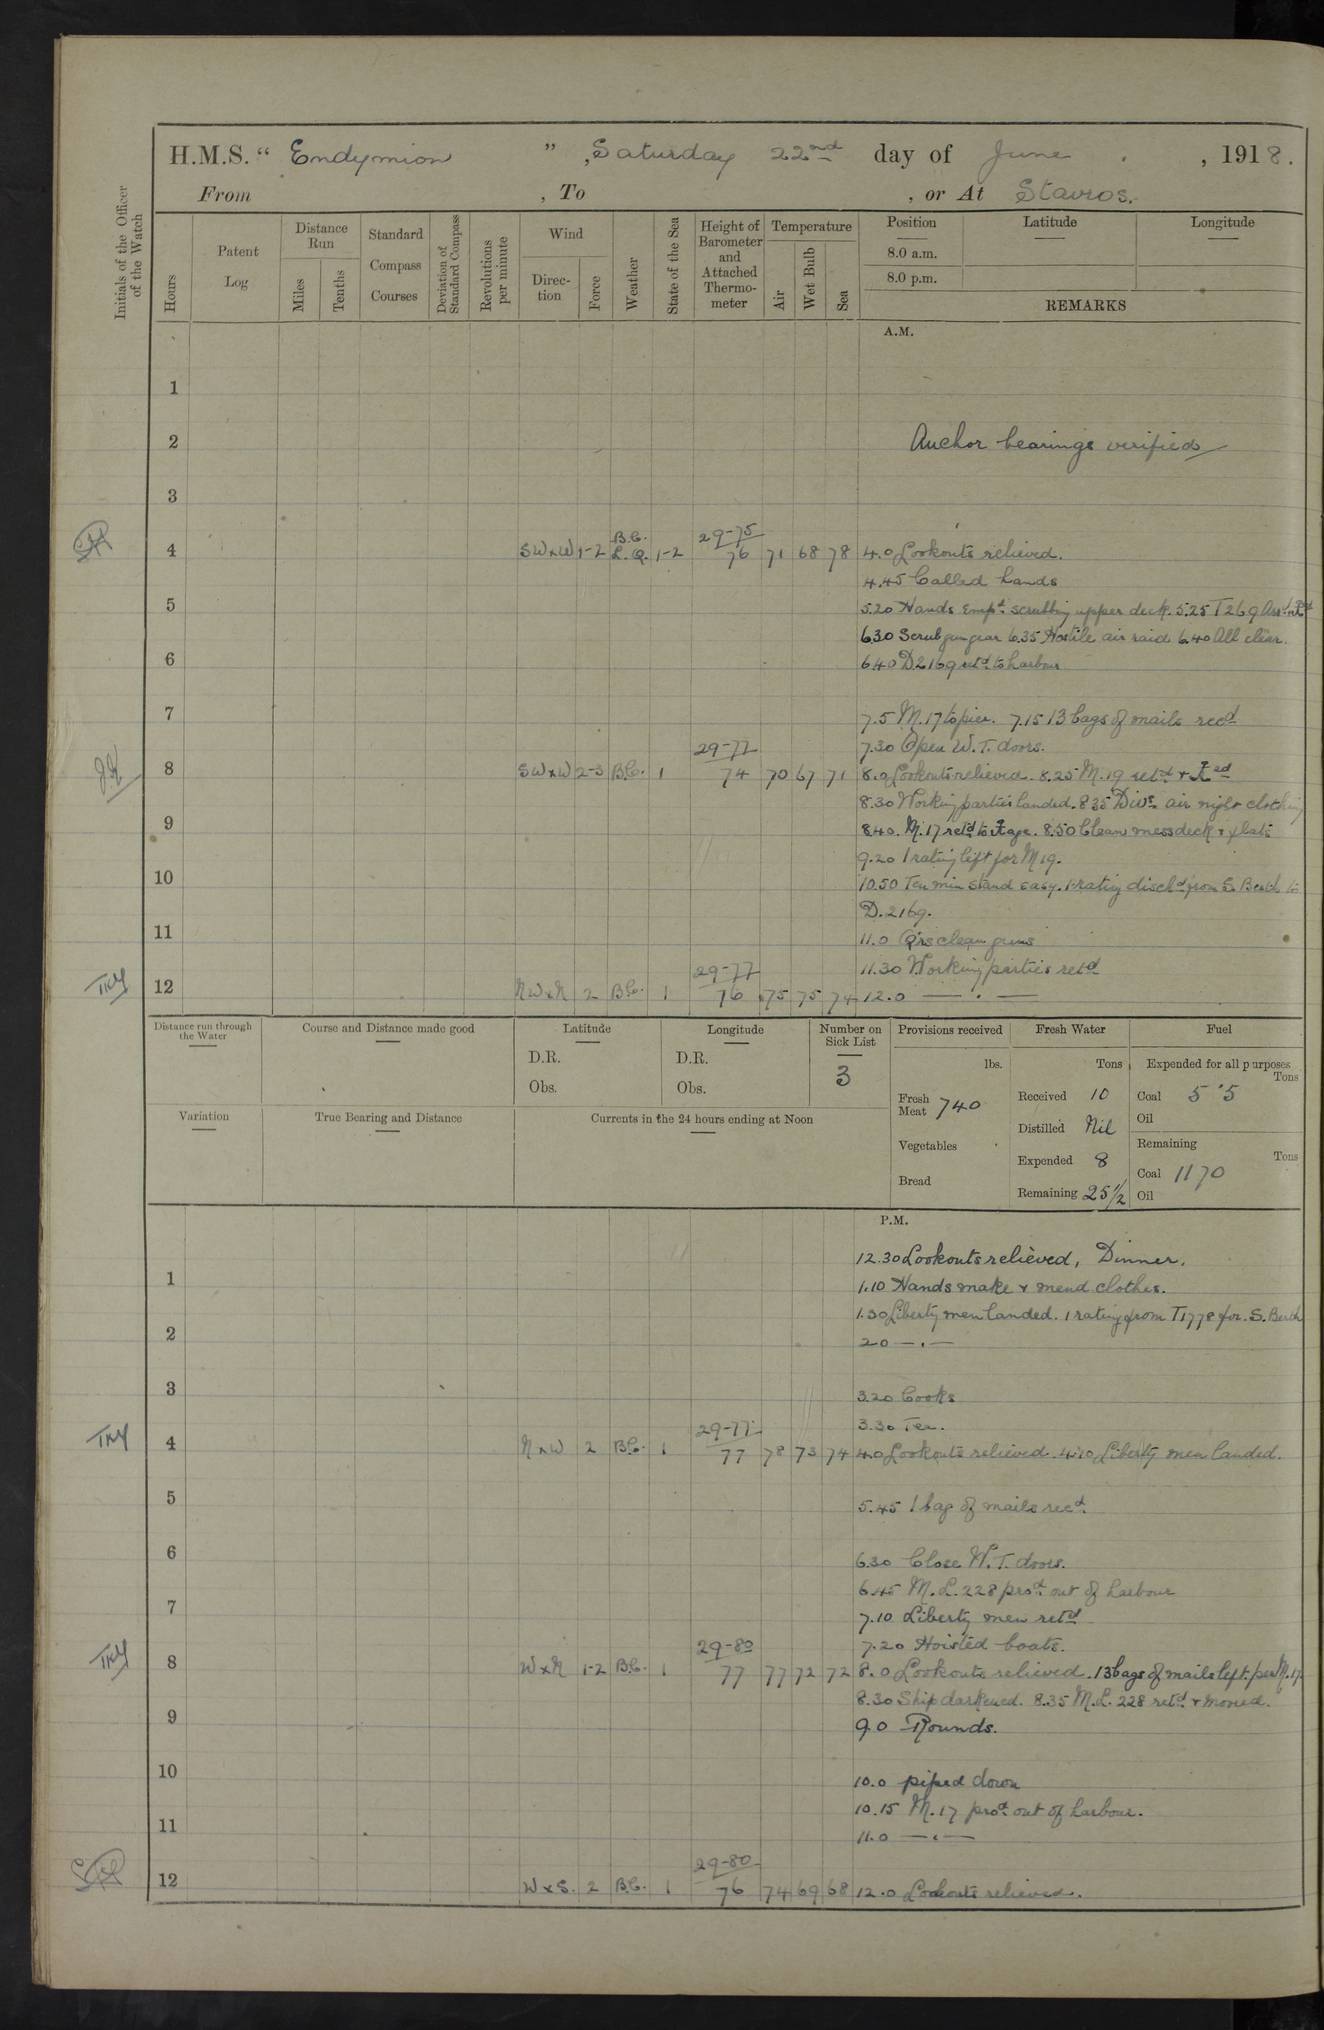 H.M.S. “ Endymion ” , Saturday 22nd day of June , 1918.
From , To , or At Stavros.
Initials of the Officer of the Watch
Hours
Patent Log
Distance Run
Miles
Tenths
Standard Compass Courses
Deviation of Standard Compass
Revolutions per minute
Wind
Direction
Force
Weather
State of the Sea
Height of Barometer and Attached Thermometer
Temperature
Air
Wet Bulb
Sea
Position Latitude Longitude
8.0 a.m.
8.0 p.m.
REMARKS
A.M.
1
2 Anchor bearings verified
3
B.C. 29-75
4 SWxW 1-2 L.Q. 1-2 76 71 68 78 4.0 Lookouts relieved.
4.45 Called hands
5 5.20 Hands Empd. scrubbing upper deck. 5.25 T 269
6.30 Scrub gun gear 6.35 Hostile air raid 6.40 All clear.
6 6.40 D2169 retd. to harbour
7 7.5 M.17 to pier. 7.15 13 bags of mails recd
29-77 7.30 Open W.T. doors.
8 SWxW 2-3 B.C. 1 74 70 67 71 8.0 Lookouts relieved. 8.25 M.19 retd. &
8.30 Working parties landed. 8.35 Divs. air night clothing
9 8.40. M.17 retd to 8.50 Clean mess deck & flats
9.20 1 rating left for M19.
10 10.50 Ten min stand easy. 1 rating dischd from S. Berth to
D.2169.
11 11.0 Qrs clean guns
29-77 11.30 Working parties retd
12 NWxN 2 B.C. 1 76 75 75 74 12.0 — . —
Distance run through the Water
Course and Distance made good
Latitude
D.R.
Obs.
Longitude
D.R.
Obs.
Number on Sick List
3
Variation
True Bearing and Distance
Currents in the 24 hours ending at Noon
Provisions received
lbs.
Fresh Meat 740
Vegetables
Bread
Fresh Water
Tons
Received 10
Distilled Nil
Expended 8
Remaining 25 1/2
Fuel
Expended for all purposes
Tons
Coal 5.5
Oil
Remaining
Tons
Coal 1170
Oil
P.M.
12.30 Lookouts relieved, Dinner.
1 1.10 Hands make & mend clothes.
1.30 Liberty men landed. 1 rating from T1778 for S. Berth
2 2.0 — . —
3 3.20 Cooks
29-77 3.30 Tea.
4 NxW 2 B.C. 1 77 78 73 74 4.0 Lookouts relieved. 4.10 Liberty men landed.
5 5.45 1 bag of mails recd.
6 6.30 Close W.T. doors.
6.45 M.L. 228 prod. out of harbour
7 7.10 Liberty men retd
29-80 7.20 Hoisted boats.
8 WxN 1-2 B.C. 1 77 77 72 72 8.0 Lookouts relieved. 13 bags of mails left per M.17.
8.30 Ship darkened. 8.35 M.L. 228 retd. & moored.
9 9.0 Rounds.
10 10.0 piped down
10.15 M.17 prod. out of harbour.
11 11.0 — . —
29-80
12 WxS. 2 B.C. 1 76 74 69 68 12.0 Lookouts relieved.